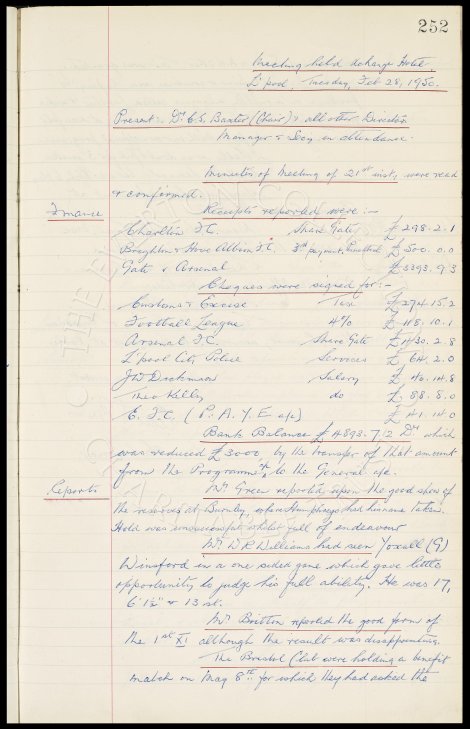 252
Meeting held Exchange Hotel
L'pool, Tuesday, Feb 28, 1950.
Present:- Dr. C.S. Baxter (Chair) & all other Directors
Manager & Secy in attendance.
Minutes of Meeting of 21st inst, were read
& confirmed.
Finance Receipts reported were:-
Charlton F.C. Share Gate £ 298. 2. 1
Brighton & Hove Albion F.C. 3rd payment, £ 500. 0. 0
Gate v Arsenal £ 3393. 9. 3
Cheques were signed for:-
Customs & Excise Tax £ 1274. 15. 2
Football League 4% £ 118. 10. 1
Arsenal F.C. Share Gate £ 1430. 2. 8
L'pool City Police Services £ 64. 2. 0
Salary £ 40. 14. 8
Theo Kelly do £ 88. 8. 0
E.F.C. (P.A.Y.E a/c) £ 41. 14. 0
Bank Balance £ 4893. 7. 2 Dr which
was reduced £3000, by the transfer of that amount
from the Programme a/c to the General a/c.
Reports Mr. Green reported upon the good show of
the reserves at Burnley, where Humphreys had his nose broken.
Hold was unsuccessful whilst full of endeavour
Mr. W.R. Williams had seen Yoxall (G)
Winsford in a one sided game which gave little
opportunity to judge his full ability. He was 17,
6' 1½" & 13 st.
Mr. Britton reported the good form of
the 1st XI although the result was disappointing.
The Bristol Club were holding a benefit
match on May 8th for which they had asked the